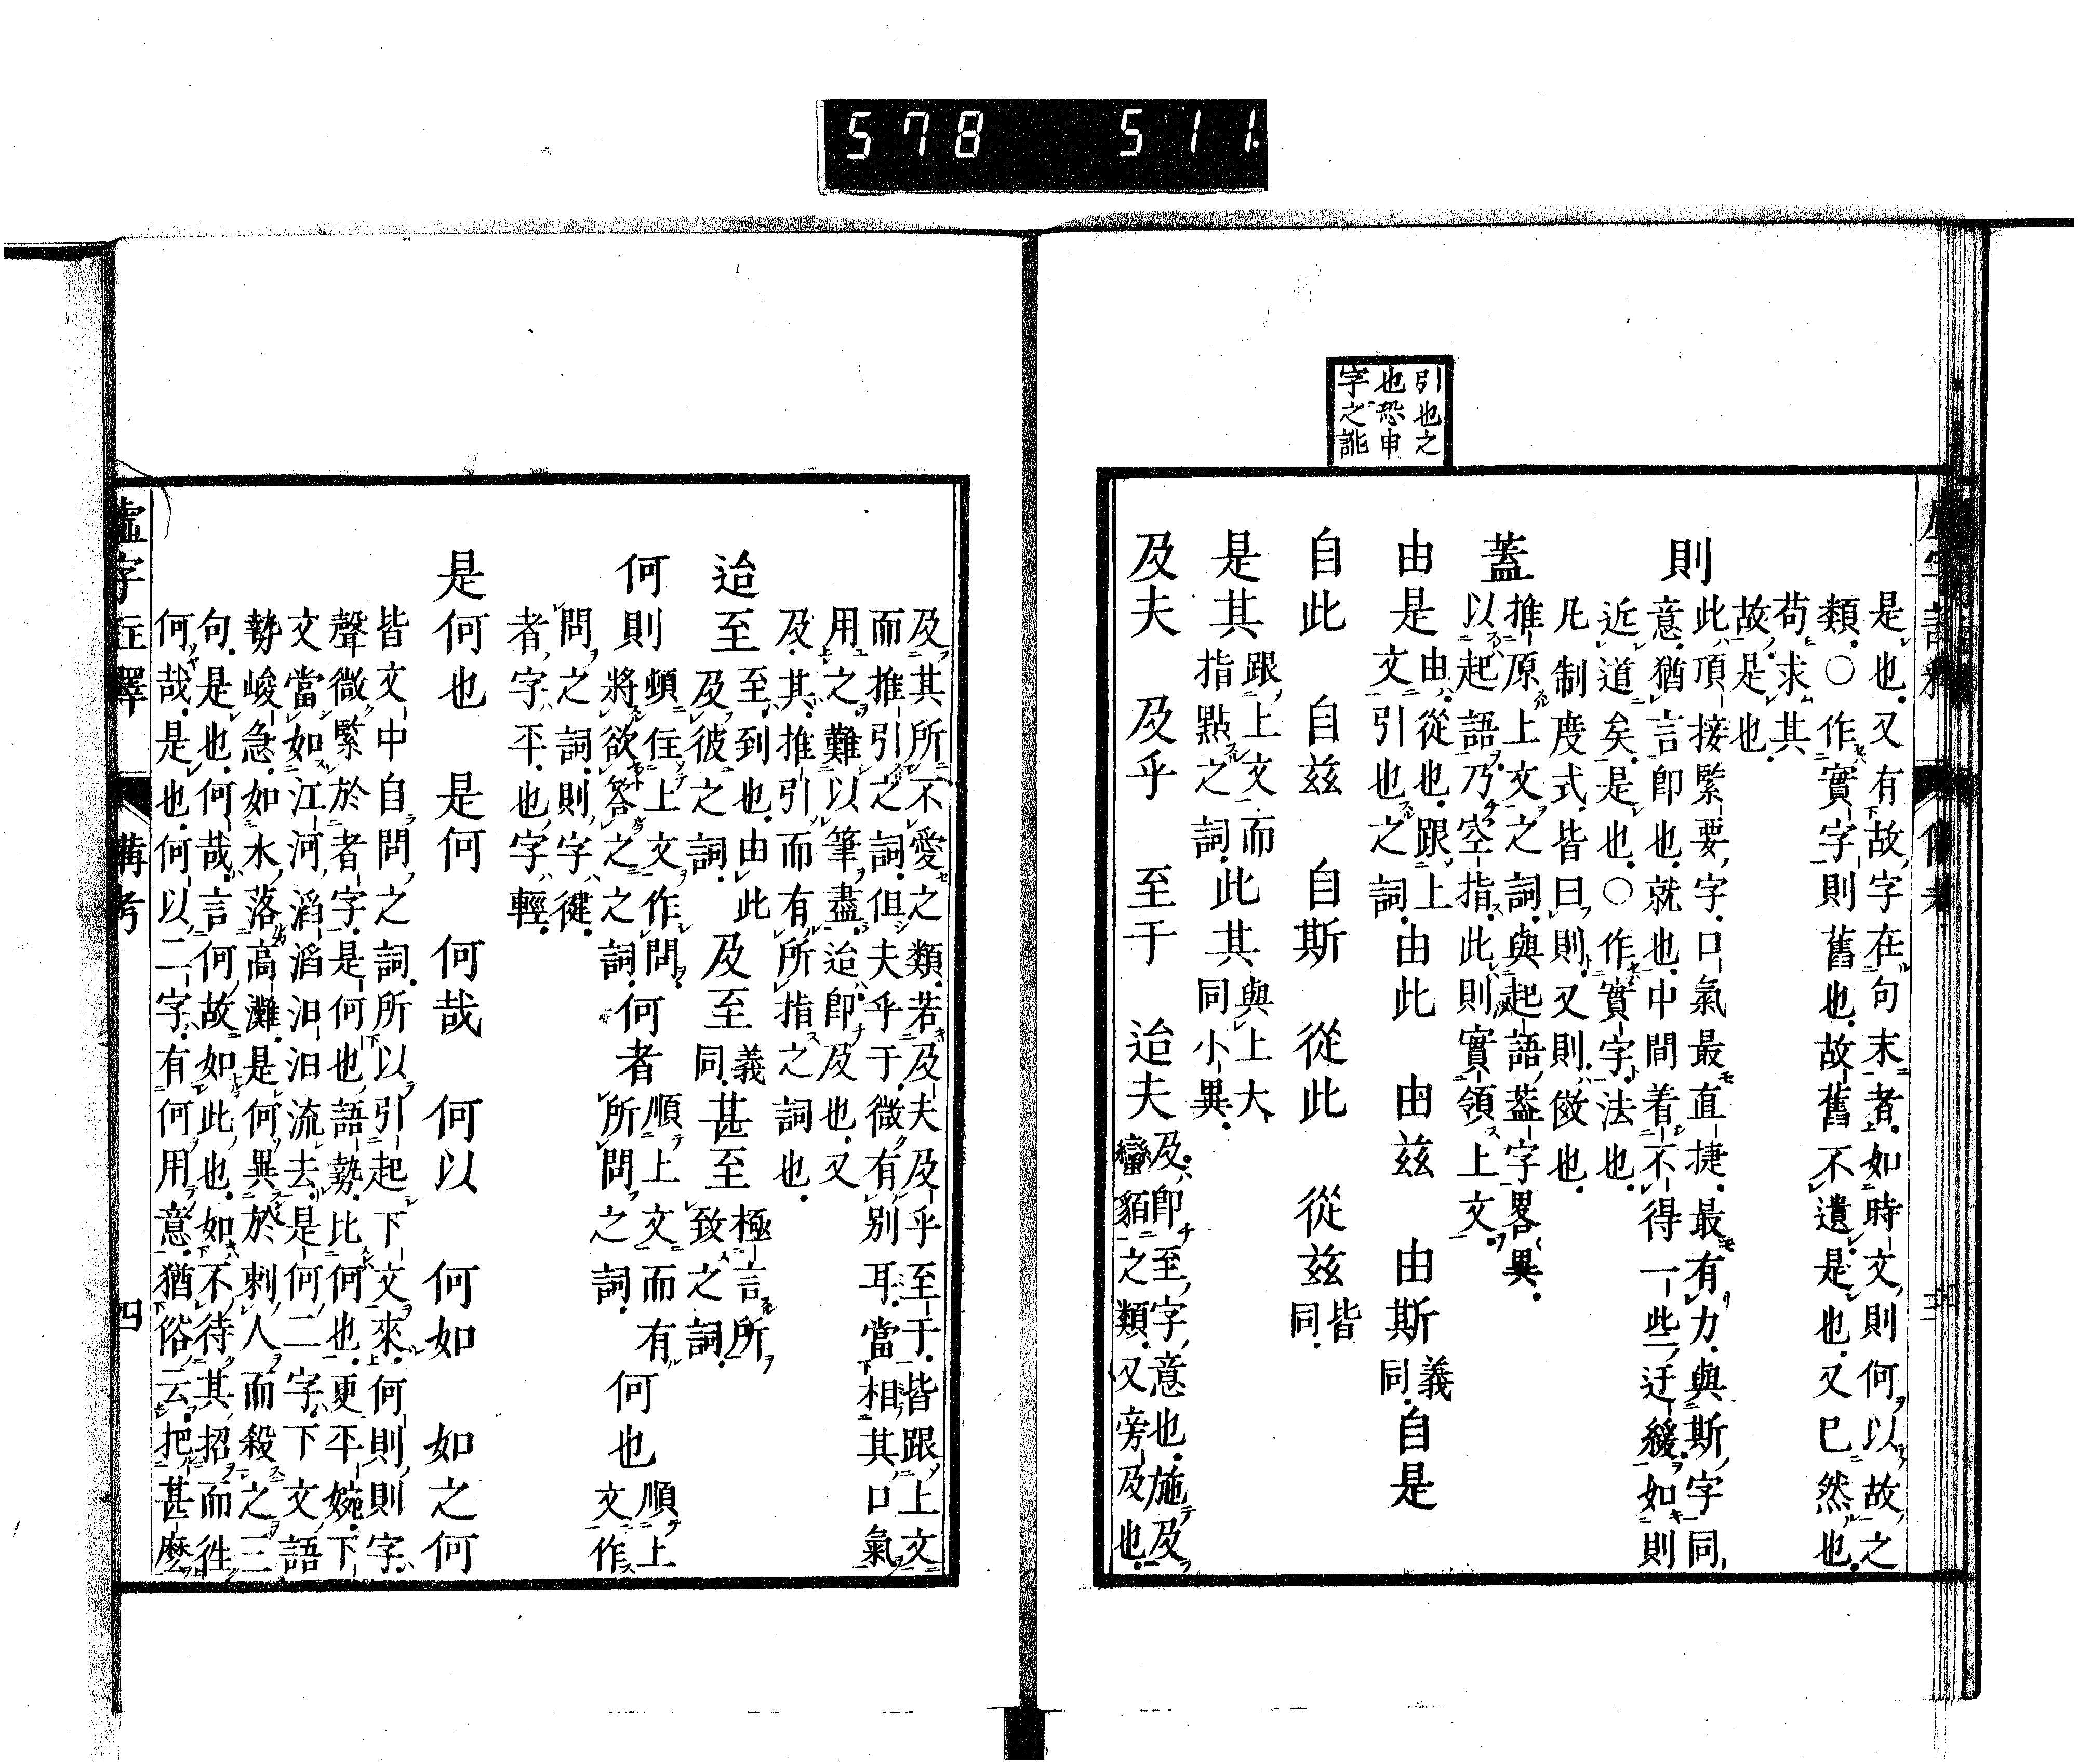 578 511.
引也之
也恐申
字之訛
是也又有故字在句末者如時文則何以故之
類○作實字則舊也故舊不遺是也又巳然也
苟求其
故是也
則
此頂接緊要字口氣最直捷最有力與斯字同
意猶言即也就也中間着不得一些迂緩如則
近道矣是也○作實字法也
凡制度式皆曰則又則傚也
蓋
推原上文之詞與起語葢字畧異
以起語乃空指此則實領上文
由是 由從也跟上
文引也之詞 由此 由玆 由斯 義
同 自是
自此 自玆 自斯 從此 從玆 皆
同
是其 跟上文而
指點之詞 此其 與上大
同小異
及夫 及乎 至于 迨夫 及即至字意也施及
蠻貊之類又旁及也
及其所不愛之類若及夫及乎至于皆跟上文
而推引之詞但夫乎于微有別耳當相其口氣
用之難以筆盡迨即及也又
及其推引而有所指之詞也
迨至 至到也由此
及彼之詞 及至 義
同 甚至 極言所
致之詞
何則 頓住上文作問
將欲答之之詞 何者 順上文而有
所問之詞 何也 順上
文作
問之詞則字健
者字平也字輕
是何也 是何 何哉 何以 何如 如之何
皆文中自問之詞所以引起下文來何則則字
聲微緊於者字是何也語勢比何也更平婉下
文當如江河滔滔汩汩流去是何二字下文語
勢峻急如水落高灘是何異於刺人而殺之三
句是也何哉言何故如此也如不待其招而徃
何哉是也何以二字有何用意猶俗云把甚麽
虛字註釋 備考 四